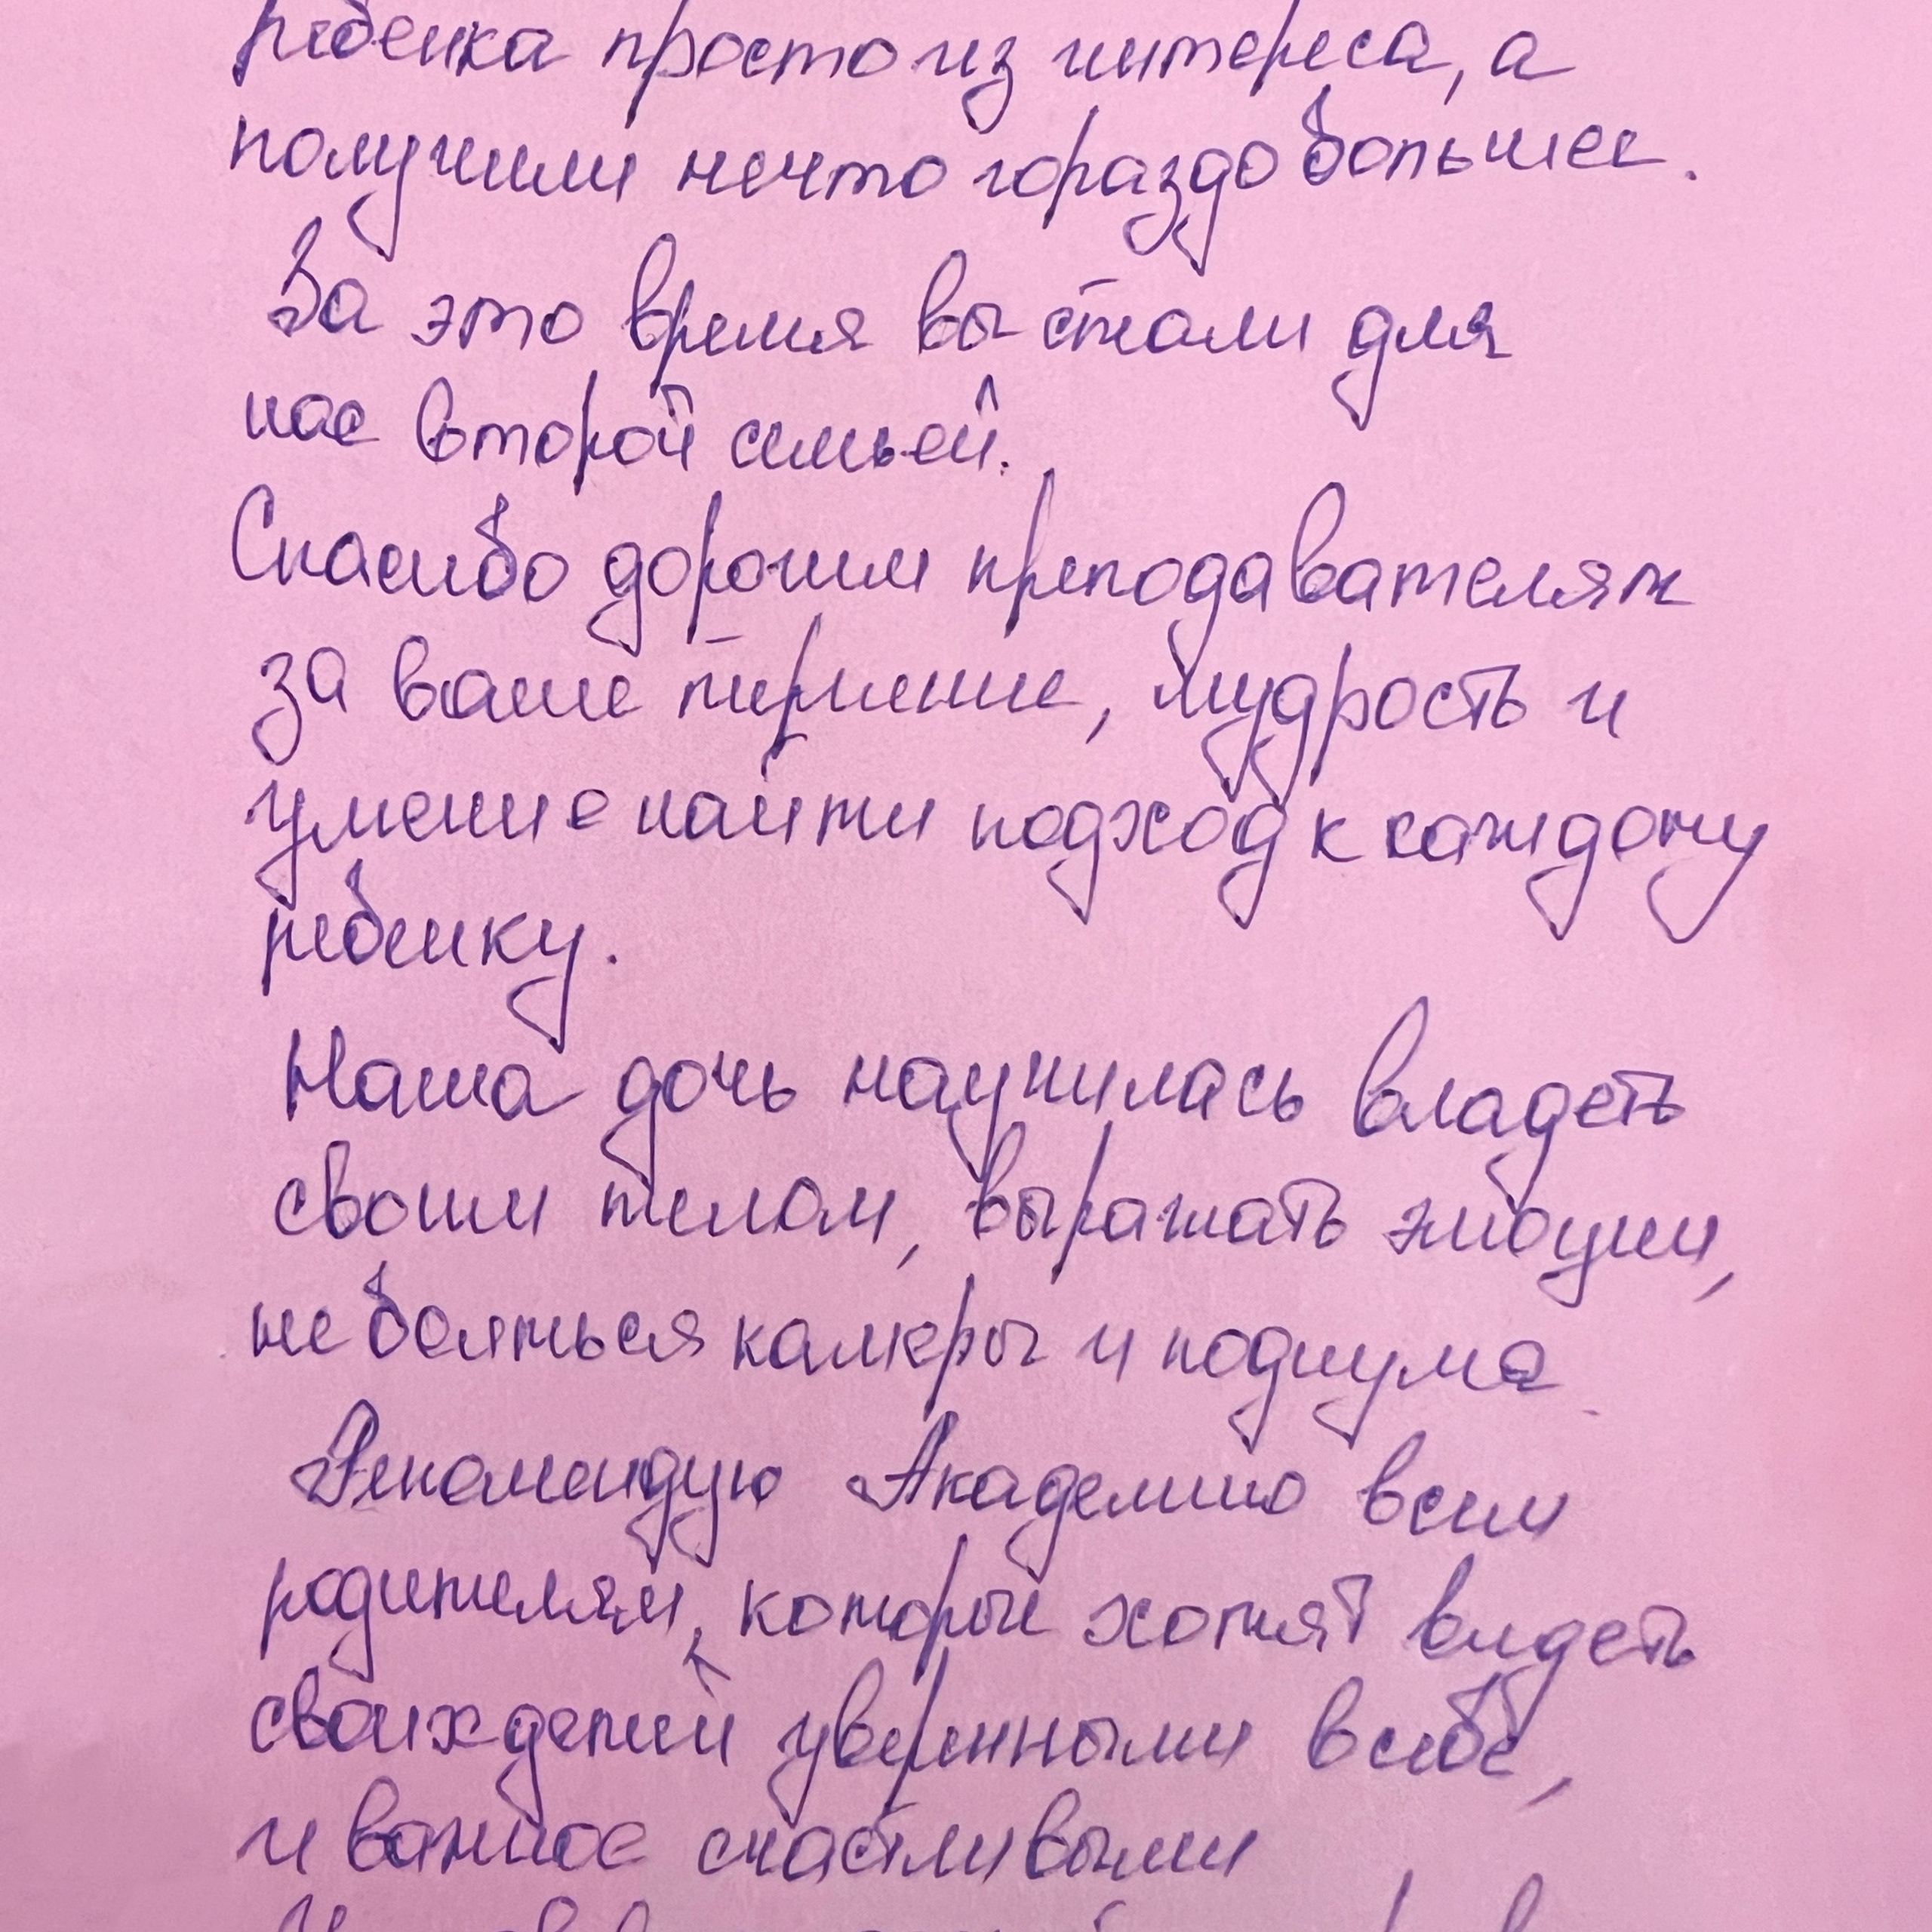 ребенка просто из интереса, а
получили нечто гораздо большее.
За это время вы стали для
нас второй семьей.
Спасибо дорогим преподавателям
за ваше терпение, мудрость и
умение найти подход к каждому
ребенку.
Наша дочь научилась владеть
своим телом, выражать эмоции,
не бояться камеры и подиума.
Рекомендую Академию всем
родителям, которые хотят видеть
своих детей уверенными в себе,
и важное счастливыми